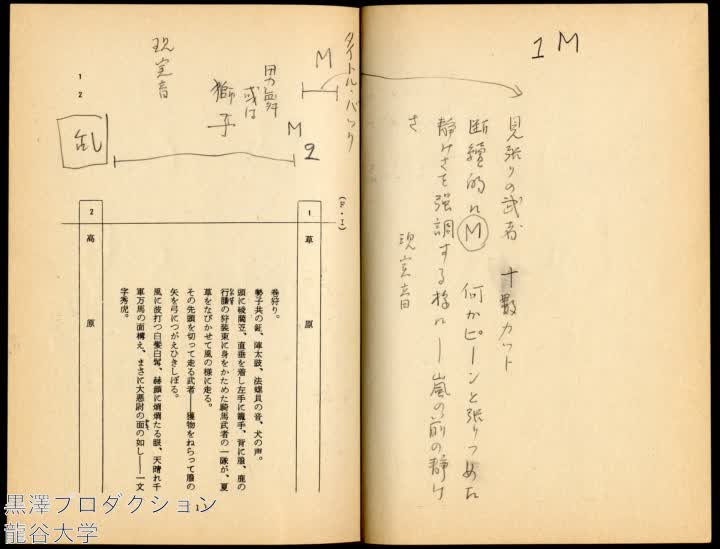 1M
見張りの武者 十数カット
断續的にM 何かピーンと張りつめた
静けさを強調する様に―嵐の前の静け
さ
現実音
タイトル・バック
M
男舞
或は
獅子
現実音
M2
12
乱
(F・I)
1 草原
巻狩り。
勢子共の鉦、陣太鼓、法螺貝の音、犬の声。
頭に綾藺笠、直垂を着し左手に籠手、背に箙、鹿の
行縢の狩装束に身をかためた騎馬武者の一隊が、夏
草をなびかせて風の様に走る。
その先頭を切って走る武者――獲物をねらって箙の
矢を弓につがえひきしぼる。
2 高原
風に波打つ白髪白髯、赫顔に爛爛たる眼、天晴れ千
軍万馬の面構え、まさに大悪尉の面の如し――一文
字秀虎。
1
黒澤プロダクション
龍谷大学